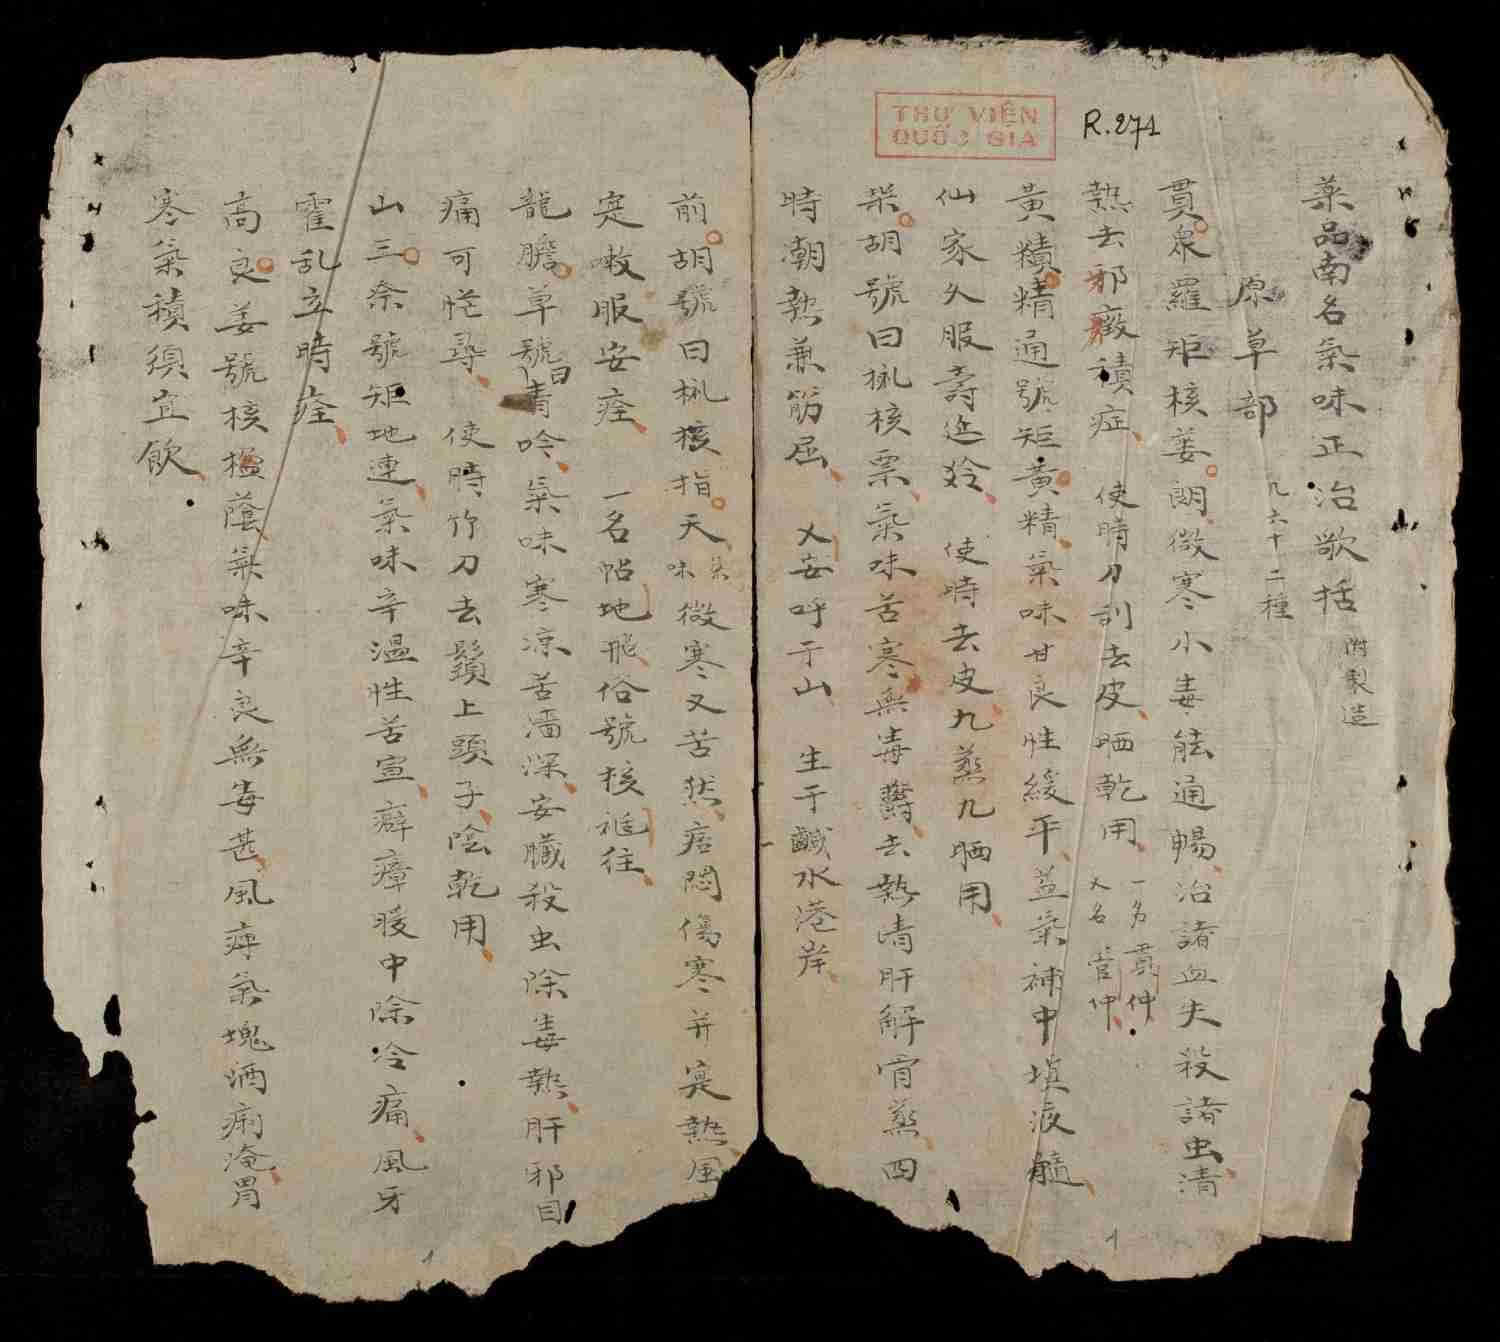 THƯ VIỆN
QUỐC GIA
R.271
藥品南名氣味正治歌括 附製造
原草部 凡六十二種
貫衆羅矩核萎朗微寒小毒能通暢治諸血失殺諸虫清
熱去邪癥積症 使時刀刮去皮晒乾用 一名貫仲 又名管仲
黃精精通號矩黃精氣味甘良性緩平益氣補中填液髓
仙家久服壽延齡 使時去皮九蒸九晒用
柴胡號曰核票氣味苦寒無毒去熱清肝解骨蒸四
時潮熱兼筋屈 又妄呼于山 生于鹹水港岸
前胡號曰核指天氣味微寒又苦然痞悶傷寒并寔熱風
寔嗽服安痊 一名帖地飛俗號核往
龍膽草號曰青吟氣味寒凉苦濇深安臟殺虫除毒熱肝邪目
痛可恾尋 使時竹刀去鬚上頭子陰乾用
山三奈號矩地連氣味辛溫性苦宣癖瘴暖中除冷痛風牙
霍乱立時痊
高良姜號核榲蔭氣味辛良無毒甚風痺氣塊洒痢淹胃
寒氣積須宜飲